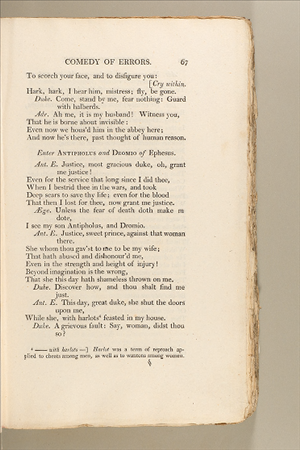 COMEDY OF ERRORS. 67
To scorch your face, and to disfigure you:
[Cry within.
Hark, hark, I hear him, mistress; fly, be gone.
Duke. Come, stand by me, fear nothing: Guard
with halberds.
Adr. Ah me, it is my husband! Witness you,
That he is borne about invisible:
Even now we hous'd him in the abbey here;
And now he's there, past thought of human reason.
Enter ANTIPHOLUS and DROMIO of Ephesus.
Ant. E. Justice, most gracious duke, oh, grant
me justice!
Even for the service that long since I did thee,
When I bestrid thee in the wars, and took
Deep scars to save thy life; even for the blood
That then I lost for thee, now grant me justice.
Æge. Unless the fear of death doth make me
dote,
I see my son Antipholus, and Dromio.
Ant. E. Justice, sweet prince, against that woman
there.
She whom thou gav'st to me to be my wife;
That hath abused and dishonour'd me,
Even in the strength and height of injury!
Beyond imagination is the wrong,
That she this day hath shameless thrown on me.
Duke. Discover how, and thou shalt find me
just.
Ant. E. This day, great duke, she shut the doors
upon me,
While she, with harlots⁶ feasted in my house.
Duke. A grievous fault: Say, woman, didst thou
so?
⁶ —— with harlots —] Harlot was a term of reproach ap-
plied to cheats among men, as well as to wantons among women.